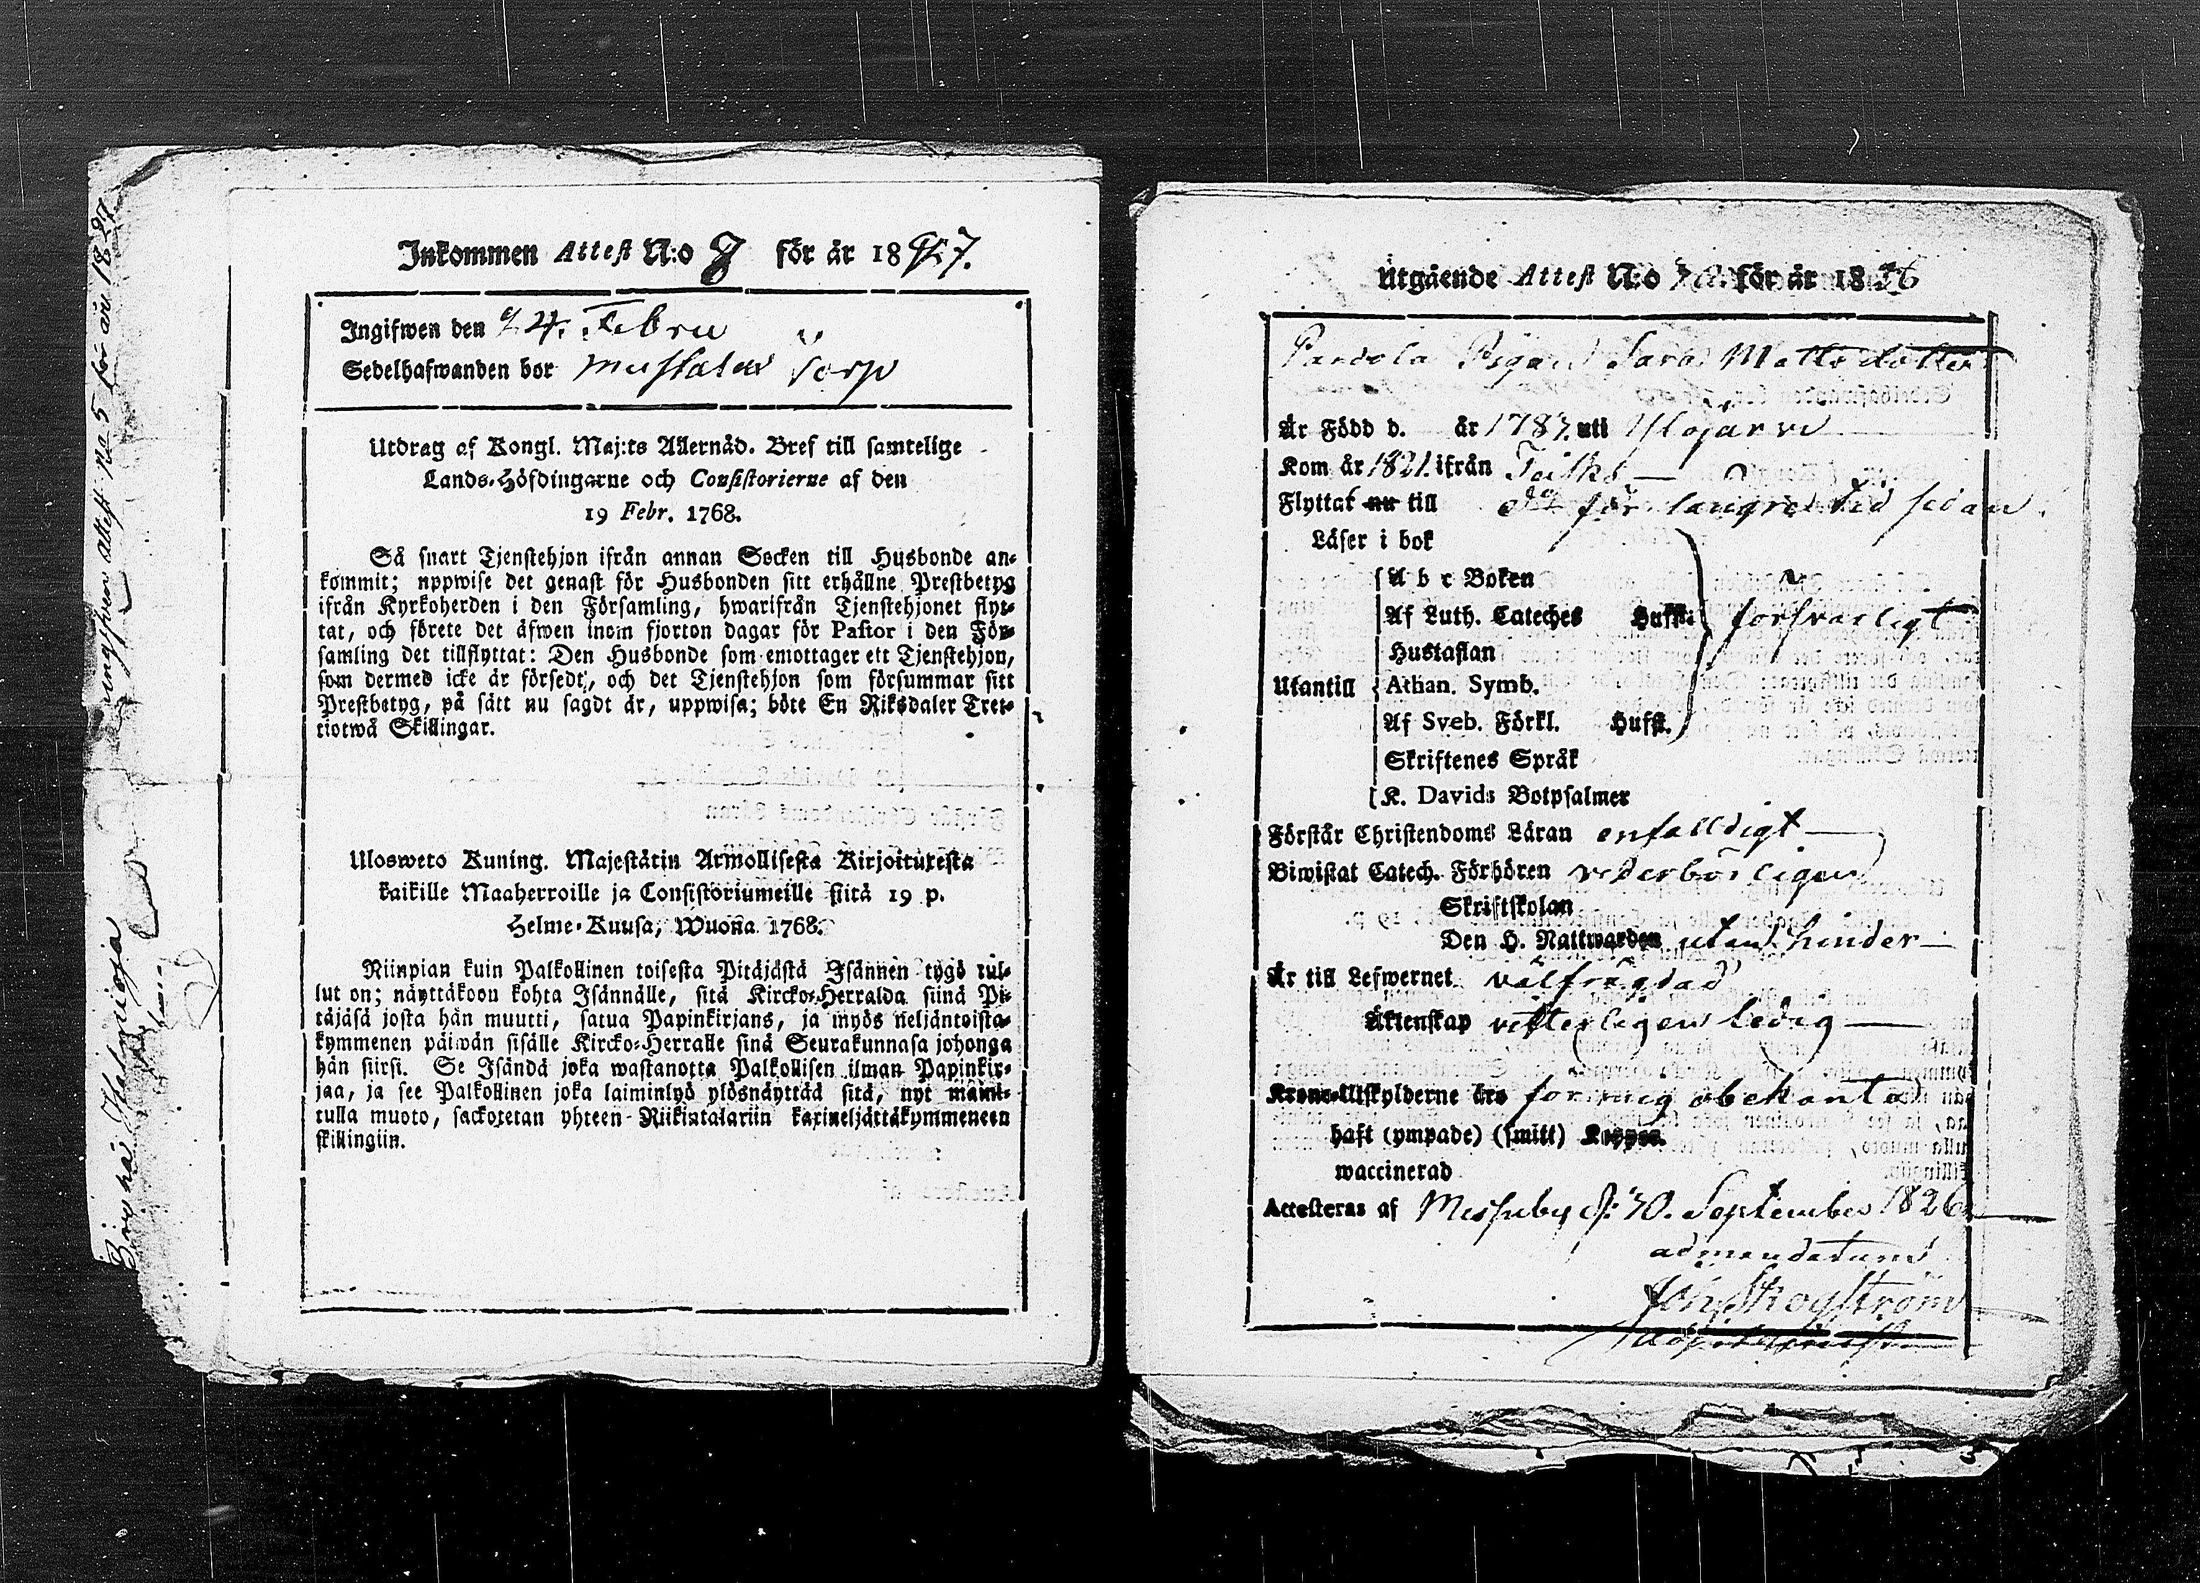 Inkommen Attest N:o 8 för år 1827.
Ingifwen den 24. Febru
Sedelhafwanden bor Mustalax Torp
Utdrag af Kongl. Maj:ts Allernåd. Bref till samtelige
Lands-Höfdingarne och Consistorierne af den
19 Febr. 1768.
Så snart Tjenstehjon ifrån annan Socken till Husbonde an-
kommit; uppwise det genast för Husbonden sitt erhållne Prestbetyg
ifrån Kyrkoherden i den Församling, hwarifrån Tjenstehjonet flyt-
tat, och förete det äfwen inom fjorton dagar för Pastor i den För-
samling det tillflyttat: Den Husbonde som emottager ett Tjenstehjon,
som dermed icke är försedt, och det Tjenstehjon som försummar sitt
Prestbetyg, på sätt nu sagdt är, uppwisa; böte En Riksdaler Tret-
tiotwå Skillingar.
Ulosweto Kuning. Majestätin Armollisesta Kirjoituxesta
kaikille Maaherroille ja Consistoriumeille siitä 19 p.
Helme-Kuusa, Wuoña 1768.
Niinpian kuin Palkollinen toisesta Pitäjästä Isännen tygö tul-
lut on; näyttäkoon kohta Isännälle, sitä Kircko-Herralda siinä Pi-
täjäsä josta hän muutti, saatua Papinkirjans, ja myös neljäntoista-
kymmenen päiwän sisälle Kircko-Herralle sinä Seurakunnasa johonga
hän siirsi. Se Isändä joka wastanotta Palkollisen ilman Papinkir-
jaa, ja see Palkollinen joka laiminlyö ylösnäyttää sitä, nyt maini-
tulla muoto, sackotetan yhteen Riikintalariin kaxineljättäkymmeneen
skillingiin.
ingifven attest No 5 för år 1827
Utgående Attest N:o för år 1826
Pandola Pigan Sara Mattsdotter
Är Född d. år 1787. uti Ylöjärvi
Kom år 1821. ifrån Teisko
Flyttat nu till do för längre tid sedan
Läser i bok
A b c Boken
Af Luth. Cateches Hufst.
försvarligt
Hustaflan
Utantill Athan. Symb.
Af Sveb. Förkl. Hufst.
Skriftenes Språk
K. Davids Botpsalmer
Förstår Christendoms Läran enfalldigt
Biwistat Catech. Förhören vederbörligen
Skriftskolan
Den H. Nattwarden utan hinder
Är till Lefwernet välfrägdad
Äktenskap
ledig
Krono-Utskylderne äro för mig obekanta
haft (ympade) (smitt) Koppor.
waccinerad
Attesteras af Messuby d: 30. September 1826
ad mandatum